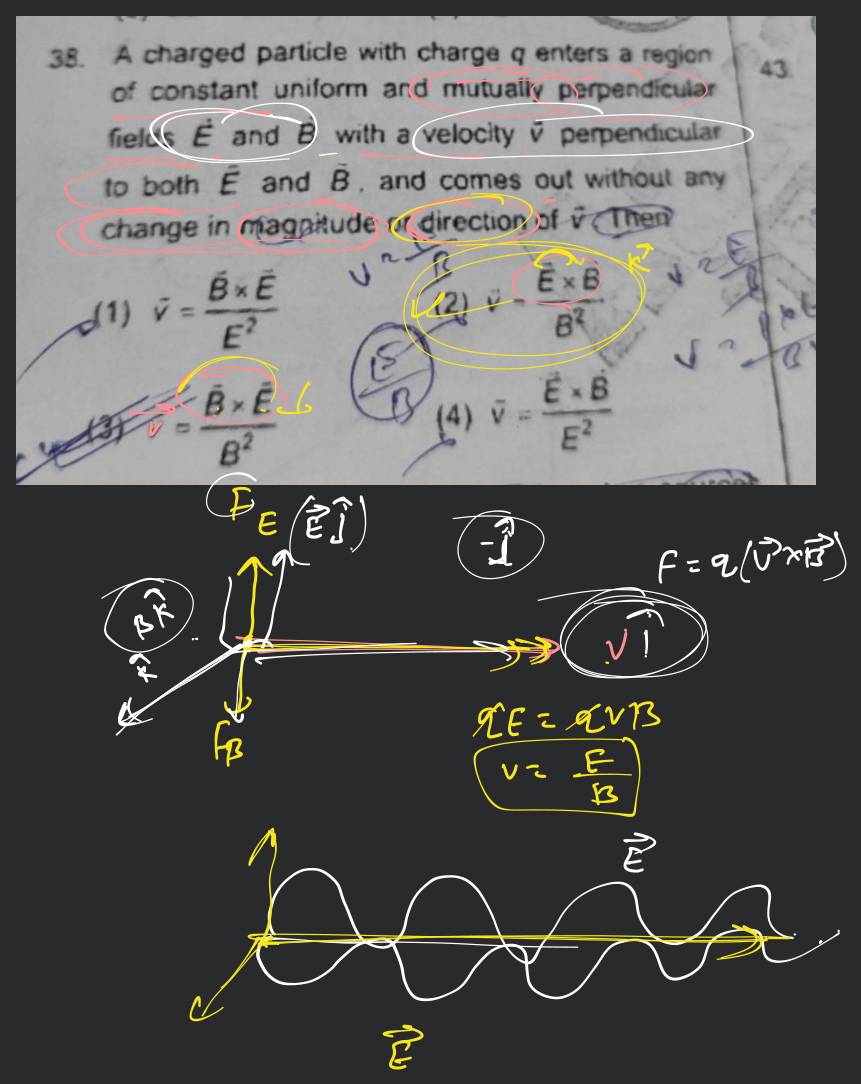 38. A charged particle with charge q enters a region
of constant uniform and mutually perpendicular
fields E⃗ and B⃗ with a velocity v⃗ perpendicular
to both E⃗ and B⃗, and comes out without any
change in magnitude or direction of v⃗ Then
43.
(1) v⃗ = B⃗ × E⃗ / E²
(2) v⃗ = E⃗ × B⃗ / B²
(3) v⃗ = B⃗ × E⃗ / B²
(4) v⃗ = E⃗ × B⃗ / E²
E / B
F E (E⃗ ĵ)
-ĵ
F = q(V⃗×B⃗)
B k̂
k̂
V î
F_B
qE = qVB
v = E / B
E⃗
E⃗